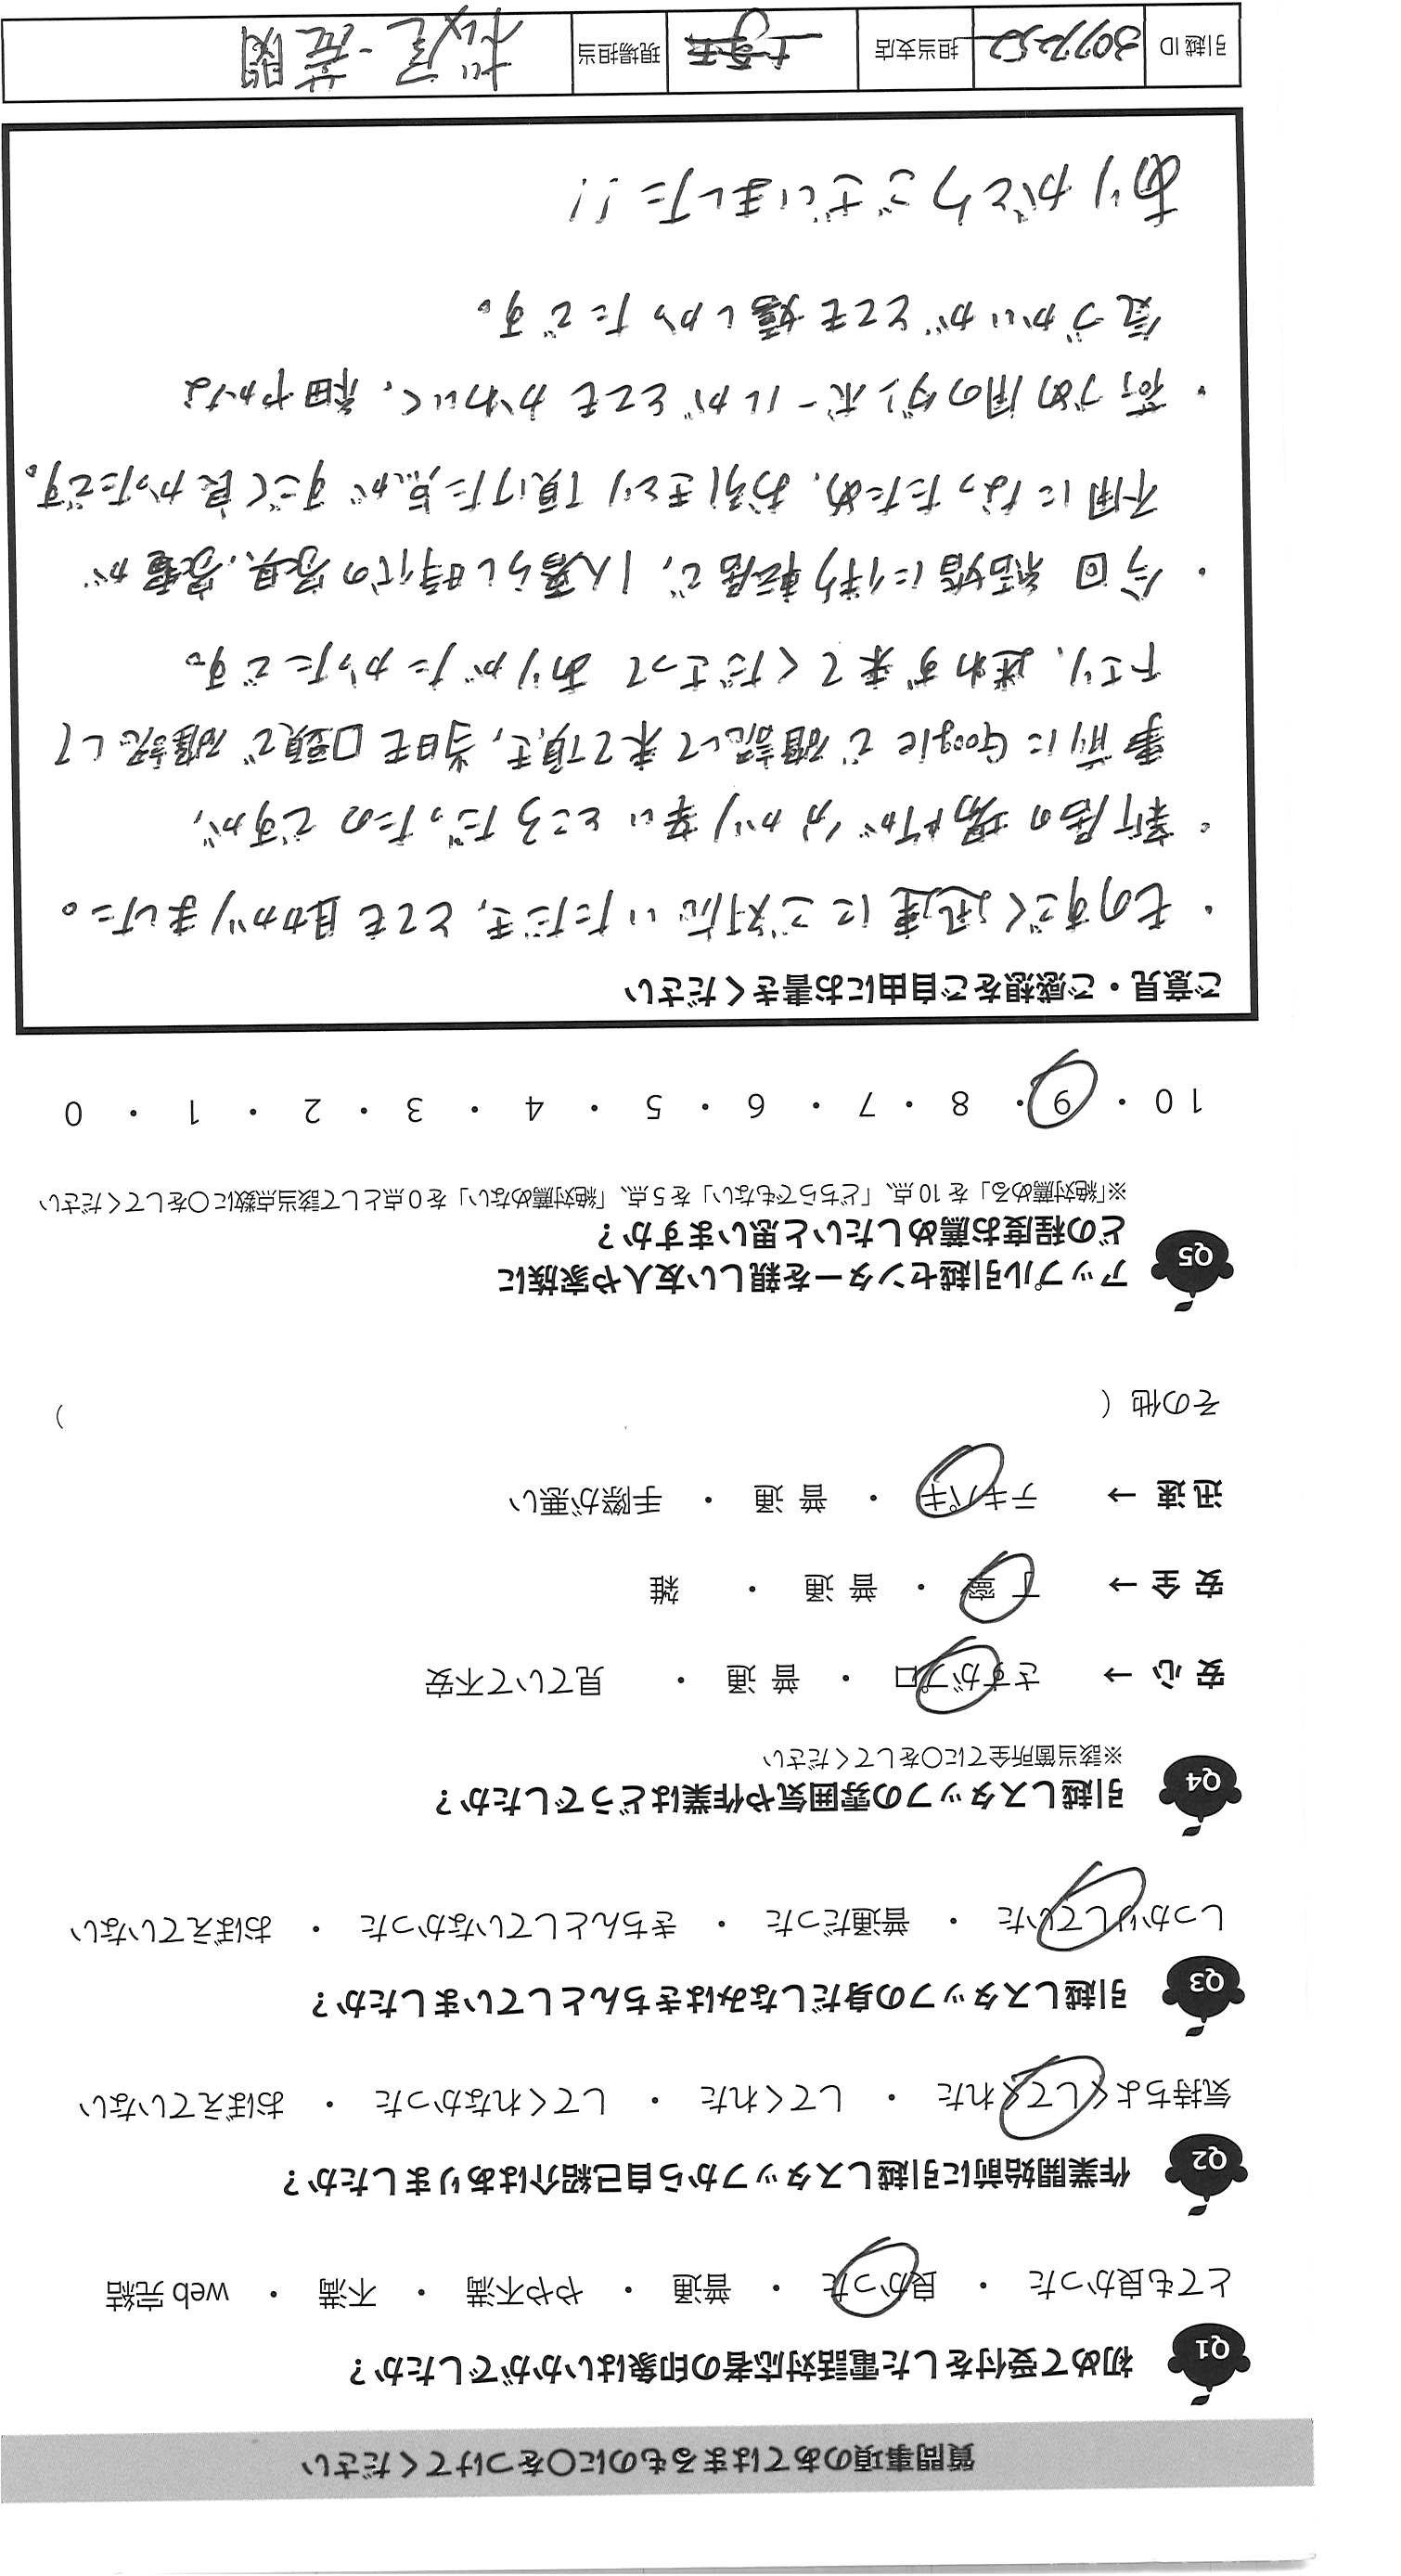 質問事項のあてはまるものに〇をつけてください
Q1 初めて受付をした電話対応者の印象はいかがでしたか？
とても良かった ・ 良かった ・ 普通 ・ やや不満 ・ 不満 ・ web 完結
Q2 作業開始前に引越しスタッフから自己紹介はありましたか？
気持ちよくしてくれた ・ してくれた ・ してくれなかった ・ おぼえていない
Q3 引越しスタッフの身だしなみはきちんとしていましたか？
しっかりしていた ・ 普通だった ・ きちんとしていなかった ・ おぼえていない
Q4 引越しスタッフの雰囲気や作業はどうでしたか？
※該当箇所全てに〇をしてください
安 心 → さすがプロ ・ 普 通 ・ 見ていて不安
安 全 → 丁 寧 ・ 普 通 ・ 雑
迅 速 → テキパキ ・ 普 通 ・ 手際が悪い
その他（ ）
Q5 アップル引越センターを親しい友人や家族に
どの程度お薦めしたいと思いますか？
※「絶対薦める」を 10 点、「どちらでもない」を 5 点、「絶対薦めない」を 0 点として該当点数に〇をしてください
10 ・ 9 ・ 8 ・ 7 ・ 6 ・ 5 ・ 4 ・ 3 ・ 2 ・ 1 ・ 0
ご意見・ご感想をご自由にお書きください
・ ものすごく迅速にご対応いただき、とても助かりました。
・ 新居の場所が分かり辛いところだったのですが、
事前に Google で確認して来て頂き、当日も口頭で確認して
下さり、迷わず来てくださって ありがたかったです。
・ 今回 結婚に伴う転居で、1人暮らし時代の家具、家電が
不用になったため、お引きとり頂けた点が すごく良かったです。
・ 荷づめ用のダンボールがとても かわいく、細やかな
気づかいがとても嬉しかったです。
ありがとうございました!!
引越 ID 担当支店 埼玉 現場担当